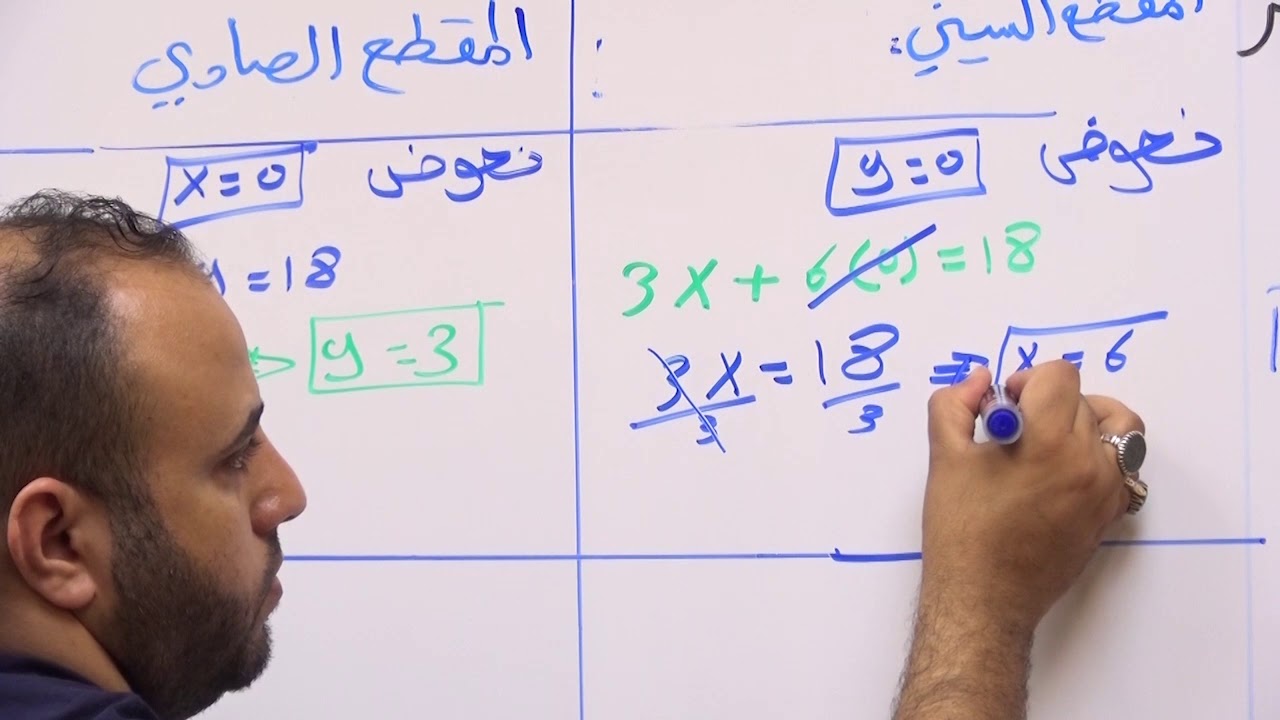 المقطع السيني:
نعوض y=0
3x + 6(0) = 18
3x/3 = 18/3 ⇒ x = 6
المقطع الصادي:
نعوض x=0
y = 18
⇒ y = 3